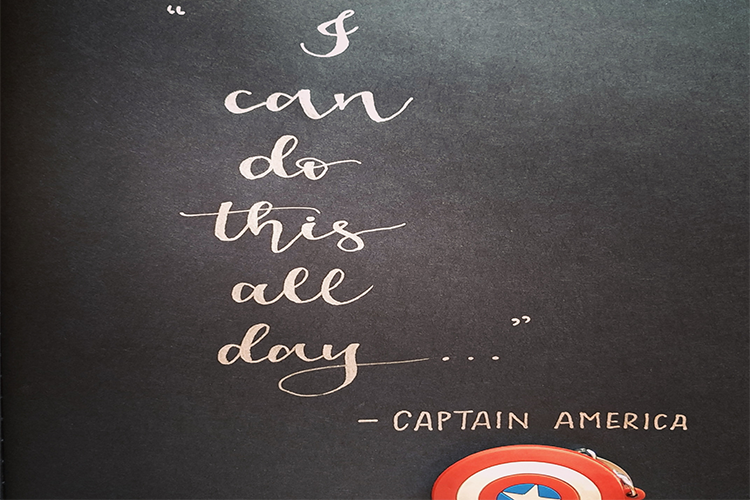 “ I
can
do
this
all
day ... ”
– CAPTAIN AMERICA